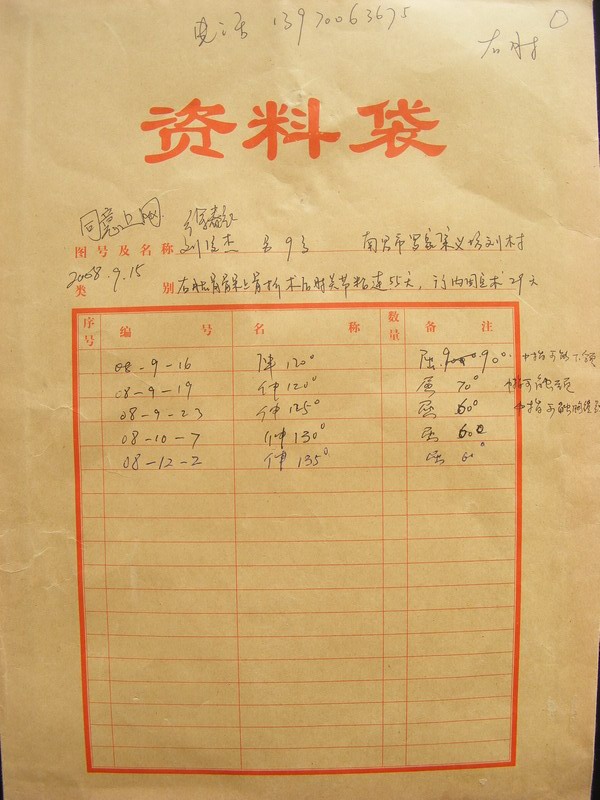 电话 13970063675
右肘
资料袋
同意上网
图号及名称 刘俊杰 男 9岁 南昌市罗家梁义坊刘村
2008.9.15
类别 右肱骨髁上骨折术后肘关节粘连55天,
序号 编号 名称 数量 备注
08-9-16 伸120° 屈 90° 中指可触下颌
08-9-19 伸120° 屈 70°
08-9-23 伸125° 屈 60°
08-10-7 伸130° 屈 60°
08-12-2 伸135° 屈 60°